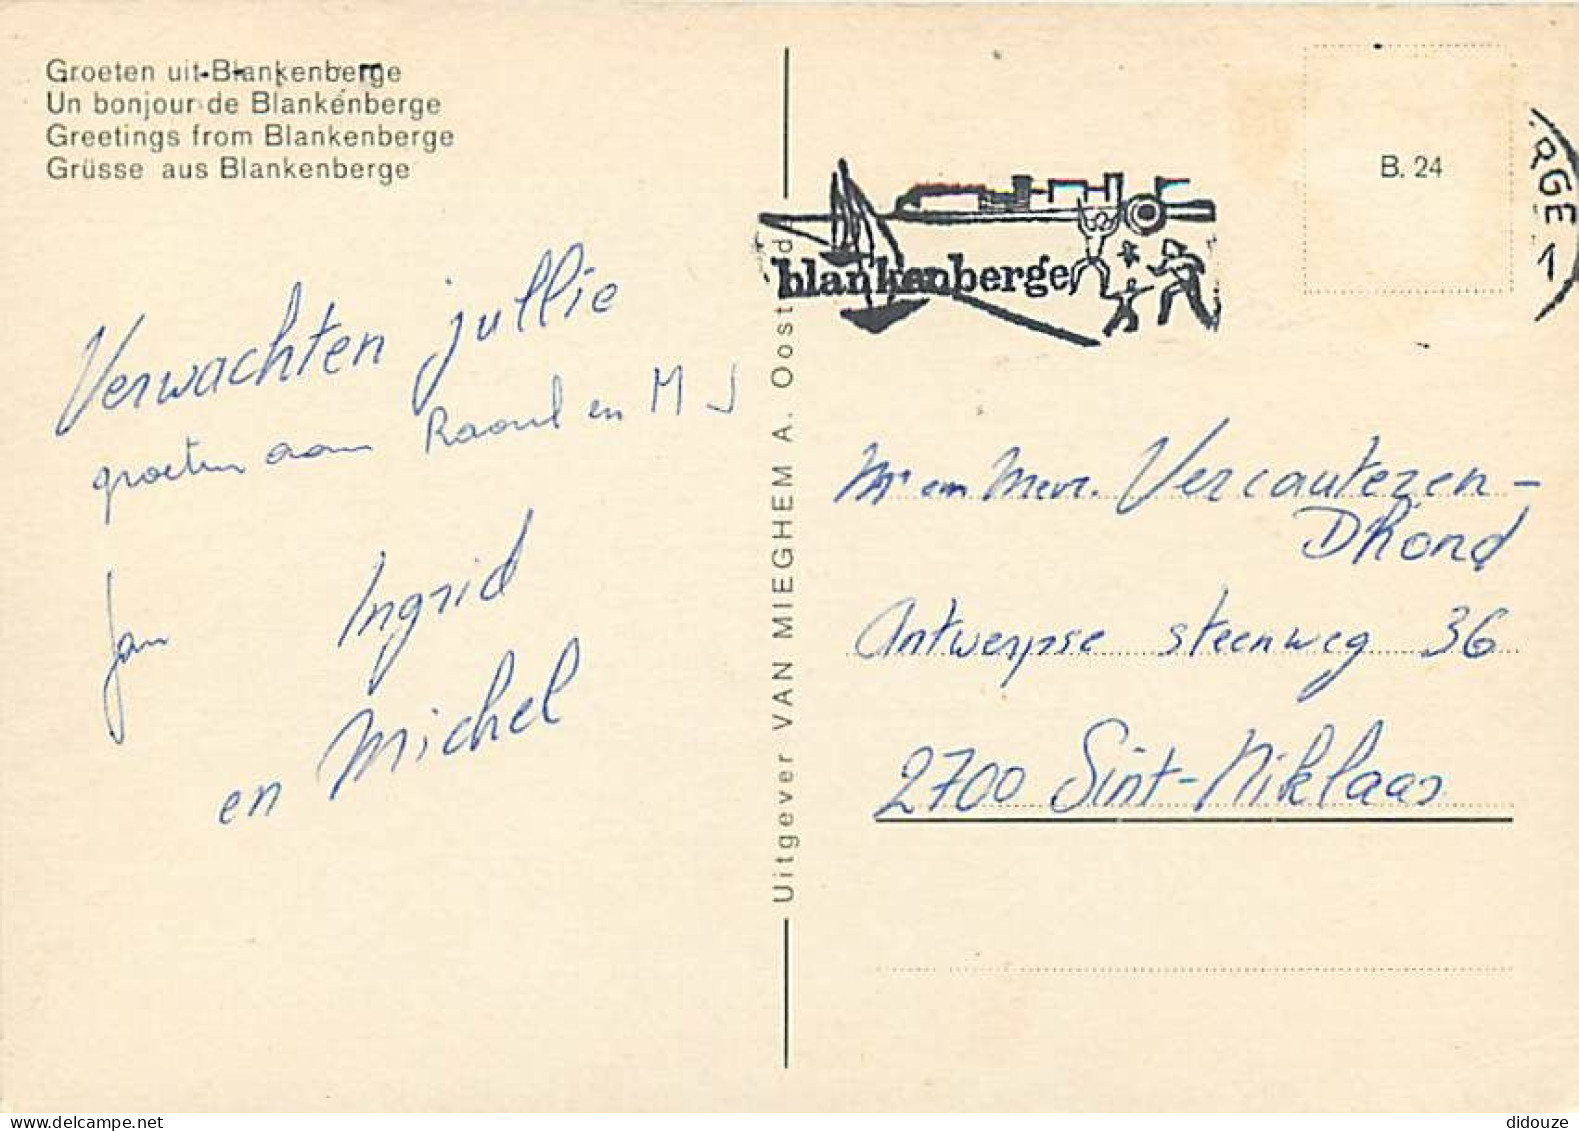 Groeten uit Blankenberge
Un bonjour de Blankenberge
Greetings from Blankenberge
Grüsse aus Blankenberge
Verwachten jullie
groeten aan Raoul en M J
Jan Ingrid
en Michel
Uitgever VAN MIEGHEM A. Oostende
blankenberge
B. 24
RGE
1
Mr en Mevr. Vercauteren-
DHond
Antwerpse steenweg 36
2700 Sint-Niklaas
didouze